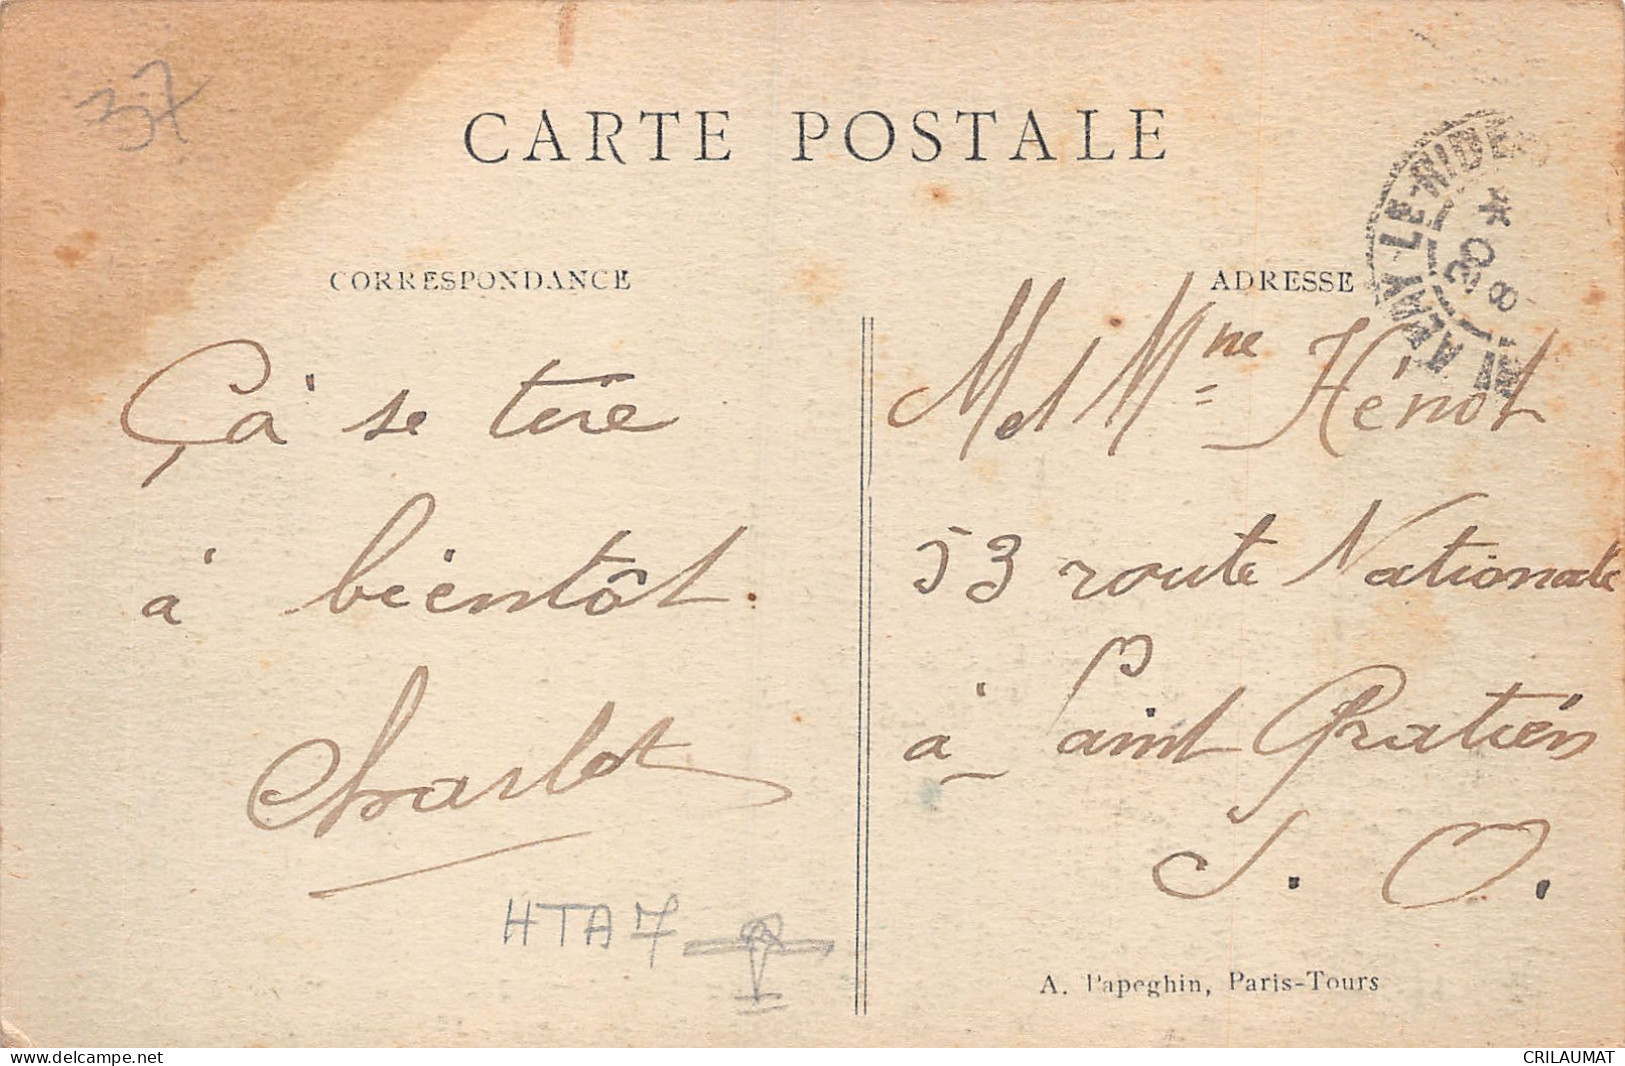 37
CARTE POSTALE
CORRESPONDANCE
Çà se tire
à bientôt.
Charlot
HTA7
ADRESSE
AZAY-LE-RIDEAU
8
M et Mme Hénot
53 route Nationale
à Saint Gratien
S. O.
A. Papeghin, Paris-Tours
www.delcampe.net
CRILAUMAT